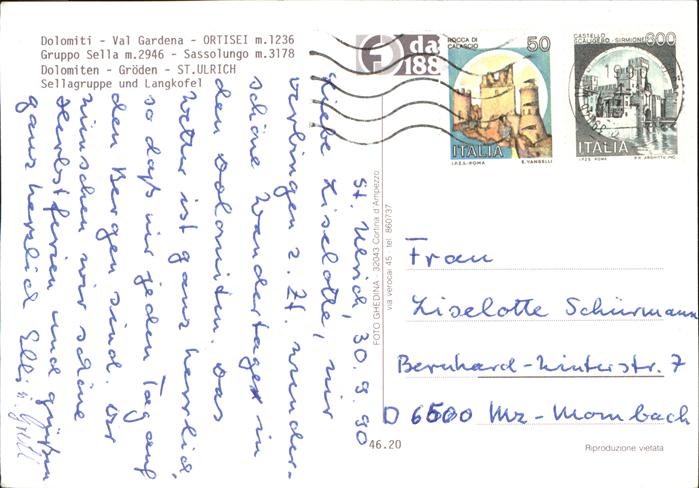 Dolomiti - Val Gardena - ORTISEI m.1236
Gruppo Sella m.2946 - Sassolungo m.3178
Dolomiten - Gröden - ST.ULRICH
Sellagruppe und Langkofel
da
188
ROCCA DI
CALASCIO
50
ITALIA
I.P.Z.S.-ROMA E. VANGELLI
CASTELLO
SCALIGERO-SIRMIONE
600
ITALIA
I.P.Z.S. ROMA
St. Ulrich, 30.9.90
Liebe Liselotte, wir
verbringen z. Zt. wunder-
schöne Wandertage in
den Dolomiten. Das
Wetter ist ganz herrlich,
so daß wir jeden Tag auf
den Bergen sind. Wir
wünschen Dir schöne
Herbstferien und grüßen
ganz herzlich Elli u.
FOTO GHEDINA - 32043 Cortina d'Ampezzo
via verocai 45 tel. 860737
Frau
Liselotte Schürmann
Bernhard-Winterstr. 7
D 6500 Mz-Mombach
46.20
Riproduzione vietata